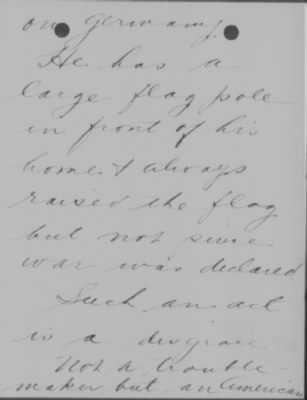 on Germany.
He has a
large flag pole
in front of his
home & always
raised the flag
but not since
war was declared
Such an act
is a disgrace.
Not a trouble
maker but an American